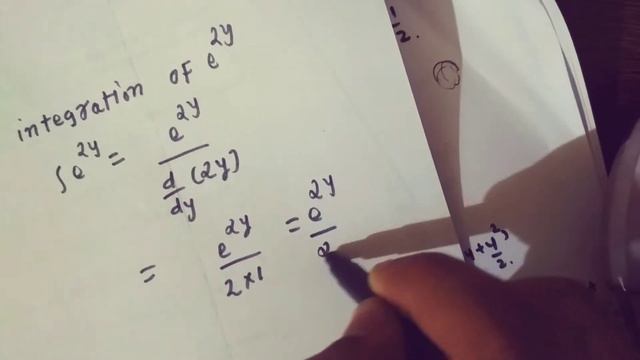 integration of e^2y
∫e^2y = e^2y / d/dy (2y)
= e^2y / 2×1 = e^2y / 2
1/2.
y + y^2/2.